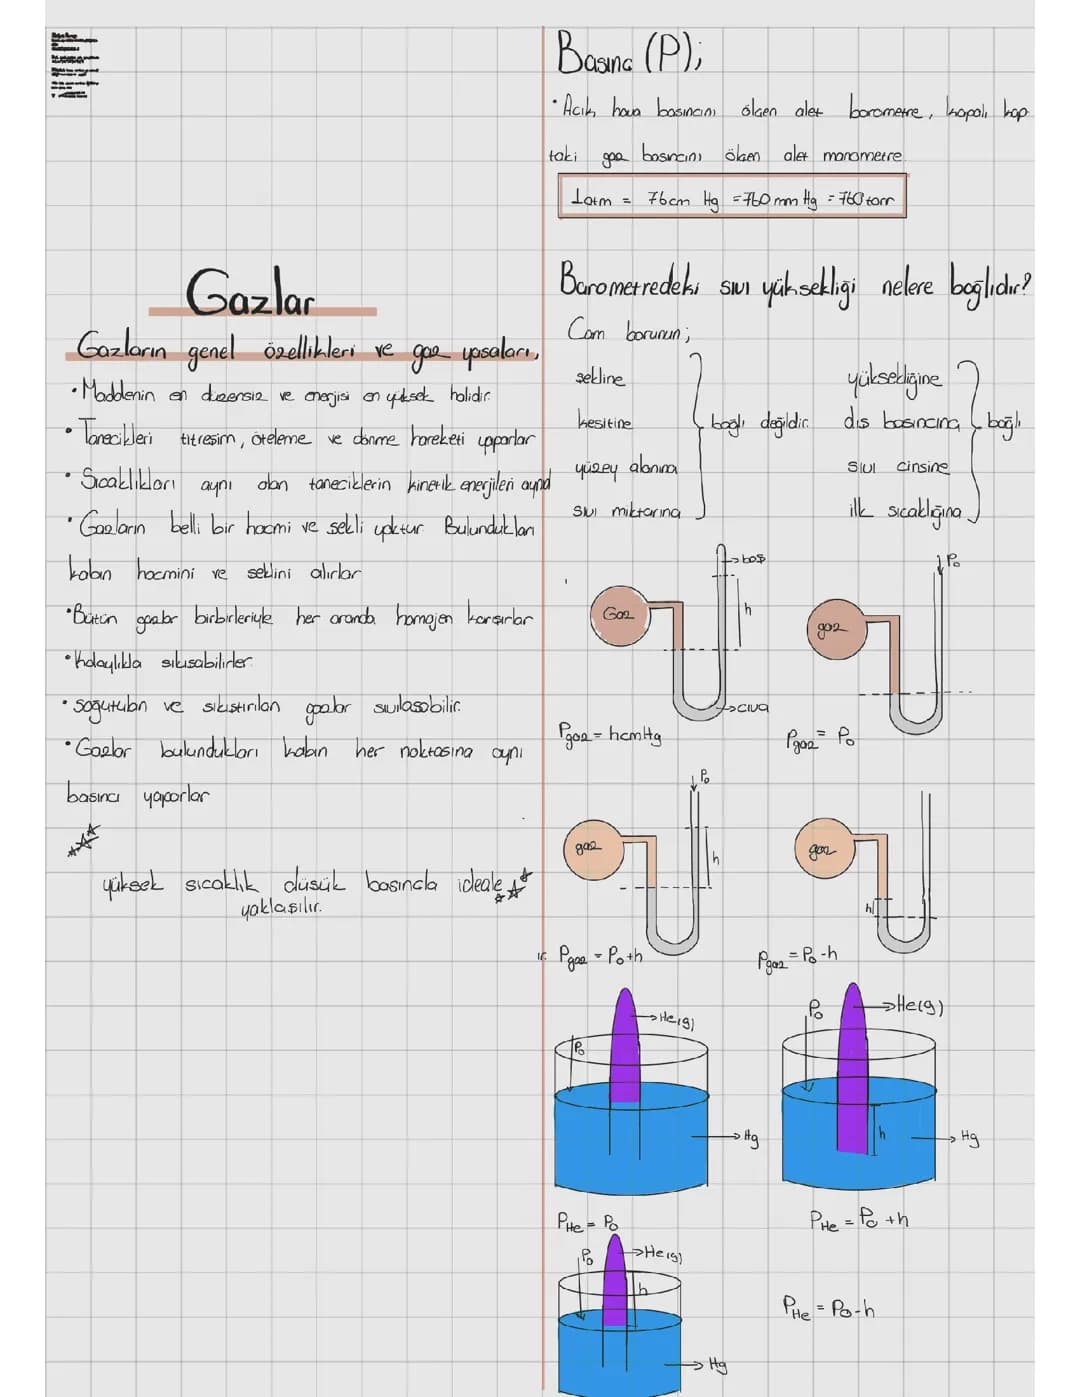 Gazlar
Gazların genel özellikleri ve gaz yasaları,
• Maddenin en düzensiz ve enerjisi en yüksek halidir.
• Tanecikleri titreşim, öteleme ve dönme hareketi yaparlar
• Sıcaklıkları aynı olan taneciklerin kinetik enerjileri aynıd
• Gazların belli bir hacmi ve şekli yoktur. Bulundukları
kabın hacmini ve şeklini alırlar
• Bütün gazlar birbirleriyle her oranda homojen karışırlar
• Kolaylıkla sıkışabilirler.
• soğutulan ve sıkıştırılan gazlar sıvılaşabilir.
• Gazlar bulundukları kabın her noktasına aynı
basıncı yaparlar
yüksek sıcaklık düşük basıncla ideale
yaklaşılır.
Basınc (P);
• Acık hava basıncını ölçen alet barometre, kapalı kap
taki gaz basıncını ölçen alet manometre.
1atm = 76cm Hg = 760 mm Hg = 760 torr
Barometredeki sıvı yüksekliği nelere bağlıdır?
Cam borunun;
şekline
kesitine
yüzey alanına
sıvı miktarına
bağlı değildir.
yüksekliğine
dış basıncına
sıvı cinsine
ilk sıcaklığına
bağlı
Gaz
boş
h
cıva
Pgaz = hcmHg
gaz
P₀
Pgaz = P₀
gaz
P₀
h
Pgaz = P₀+h
gaz
h
Pgaz = P₀-h
P₀
He(g)
Hg
PHe = P₀
P₀
He(g)
h
Hg
PHe = P₀ +h
P₀
He(g)
h
Hg
PHe = P₀-h